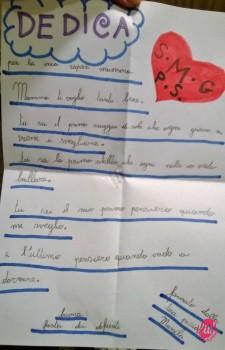 DEDICA
S. M. G
P. S.
per la mia super mamma
Mamma ti voglio tanto bene.
tu sei il primo raggio di sole che ogni giorno mi
sveglia.
tu sei la prima stella che ogni notte io vedo
brillare.
tu sei il mio primo pensiero quando
mi sveglio.
e l'ultimo pensiero quando vado a
dormire.
buona
festa
firmato dalla
tua